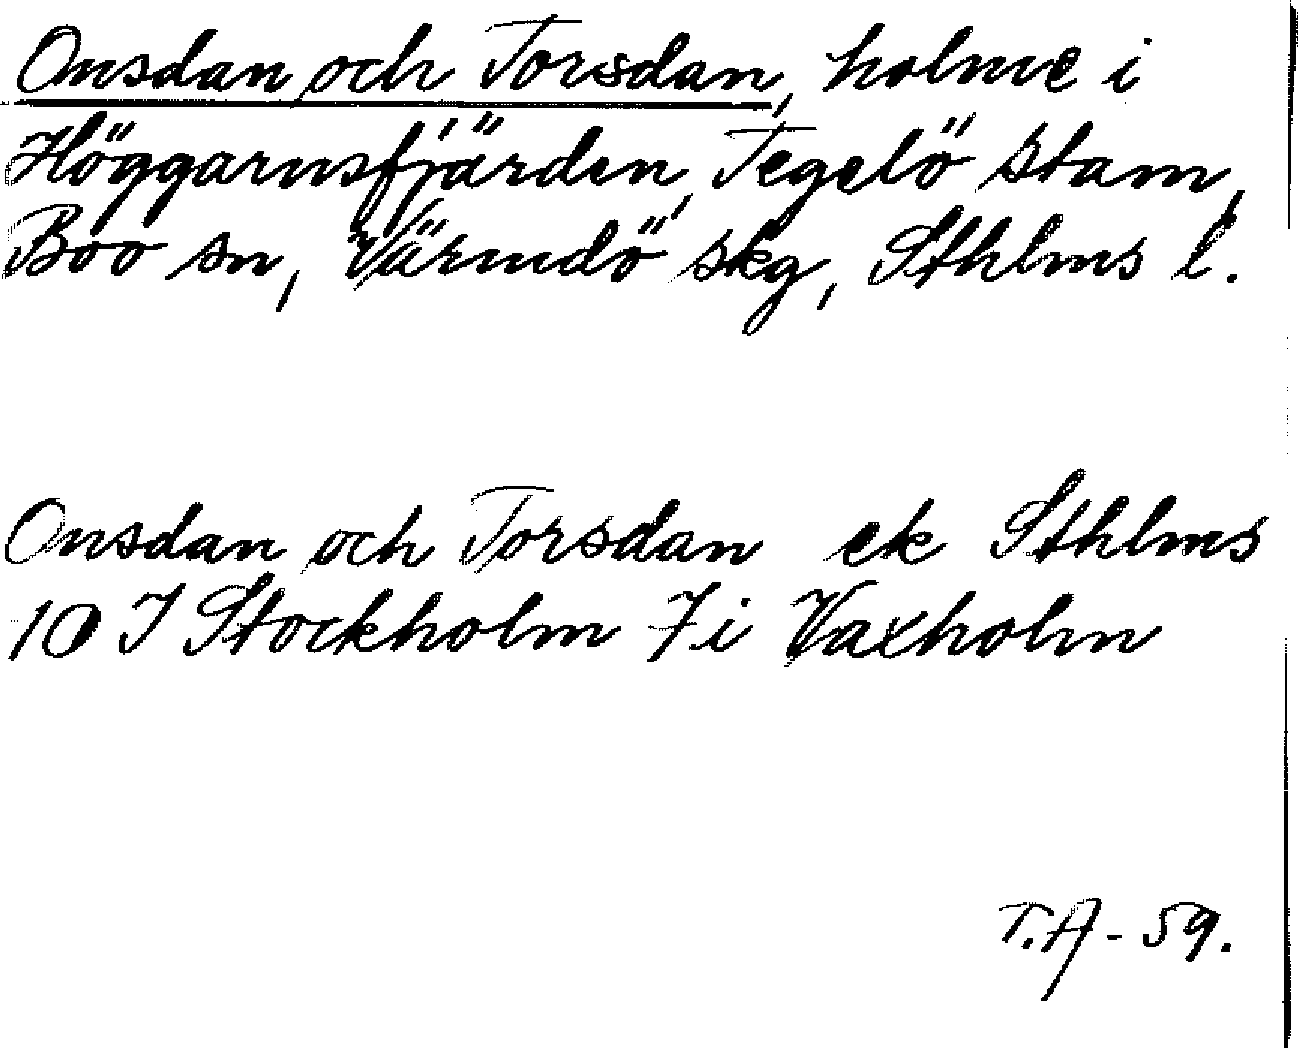 Onsdan och Torsdan, holme i
Höggarnsfjärden, Tegelö stam,
Boo sn, Värmdö skg, Sthlms l.
Onsdan och Torsdan ek Sthlms
10 I Stockholm 7 i Vaxholm
T.A - 59.